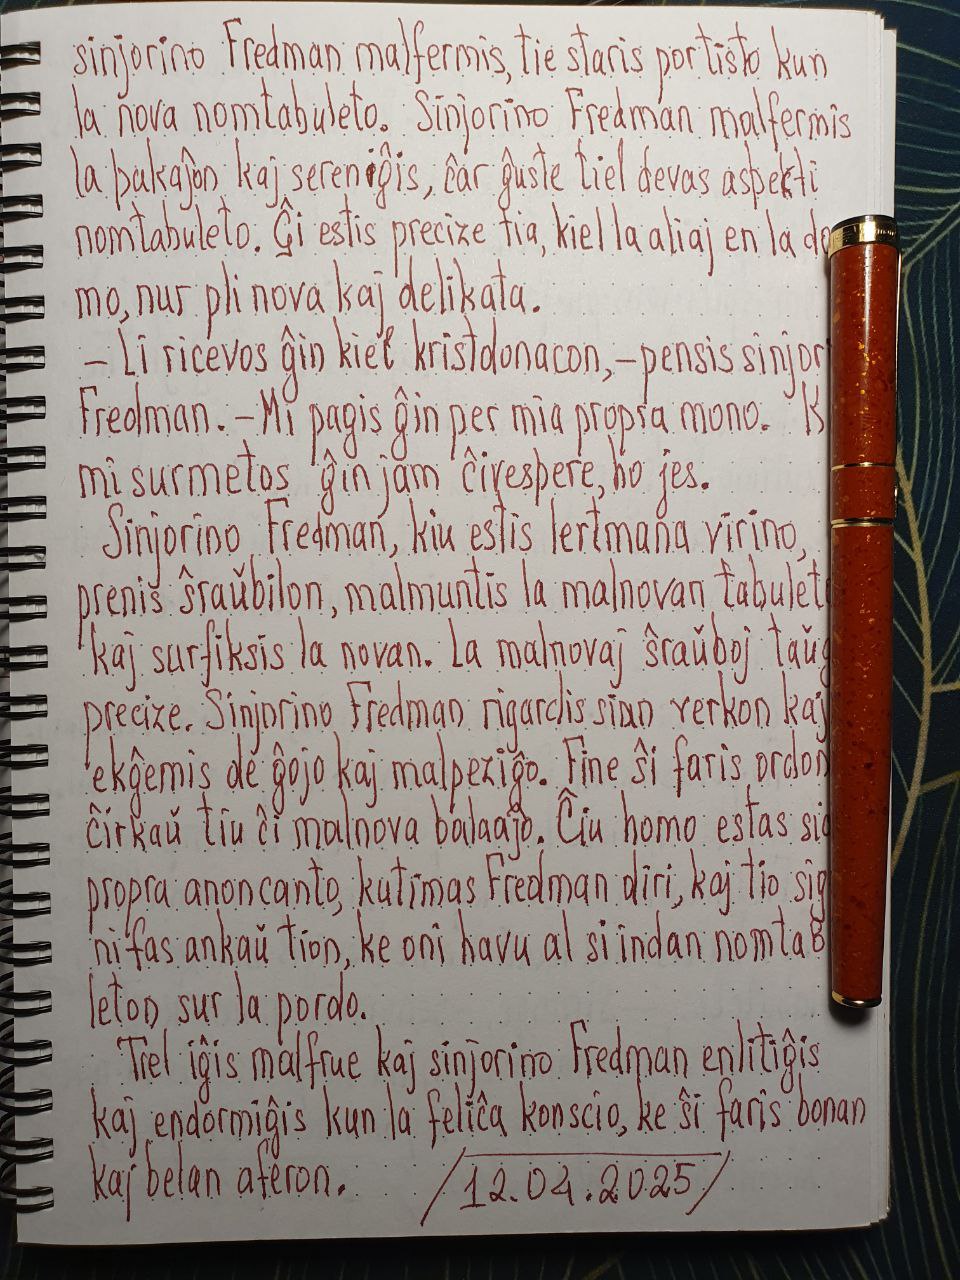 sinjorino Fredman malfermis, tie staris portisto kun
la nova nomtabuleto. Sinjorino Fredman malfermis
la pakaĵon kaj sereniĝis, ĉar ĝuste tiel devas aspekti
nomtabuleto. Ĝi estis precize tia, kiel la aliaj en la do
mo, nur pli nova kaj delikata.
– Li ricevos ĝin kiel kristdonacon, – pensis sinjor
Fredman. – Mi pagis ĝin per mia propra mono. K
mi surmetos ĝin jam ĉivespere, ho jes.
Sinjorino Fredman, kiu estis lertmana virino,
prenis ŝraŭbilon, malmuntis la malnovan tabulet
kaj surfiksis la novan. La malnovaj ŝraŭboj taŭg
precize. Sinjorino Fredman rigardis sian verkon kaj
ekĝemis de ĝojo kaj malpeziĝo. Fine ŝi faris ordon
ĉirkaŭ tiu ĉi malnova balaaĵo. Ĉiu homo estas sia
propra anoncanto, kutimas Fredman diri, kaj tio sig
nifas ankaŭ tion, ke oni havu al si indan nomtab
leton sur la pordo.
Tiel iĝis malfrue kaj sinjorino Fredman enlitiĝis
kaj endormiĝis kun la feliĉa konscio, ke ŝi faris bonan
kaj belan aferon. /12.04.2025/